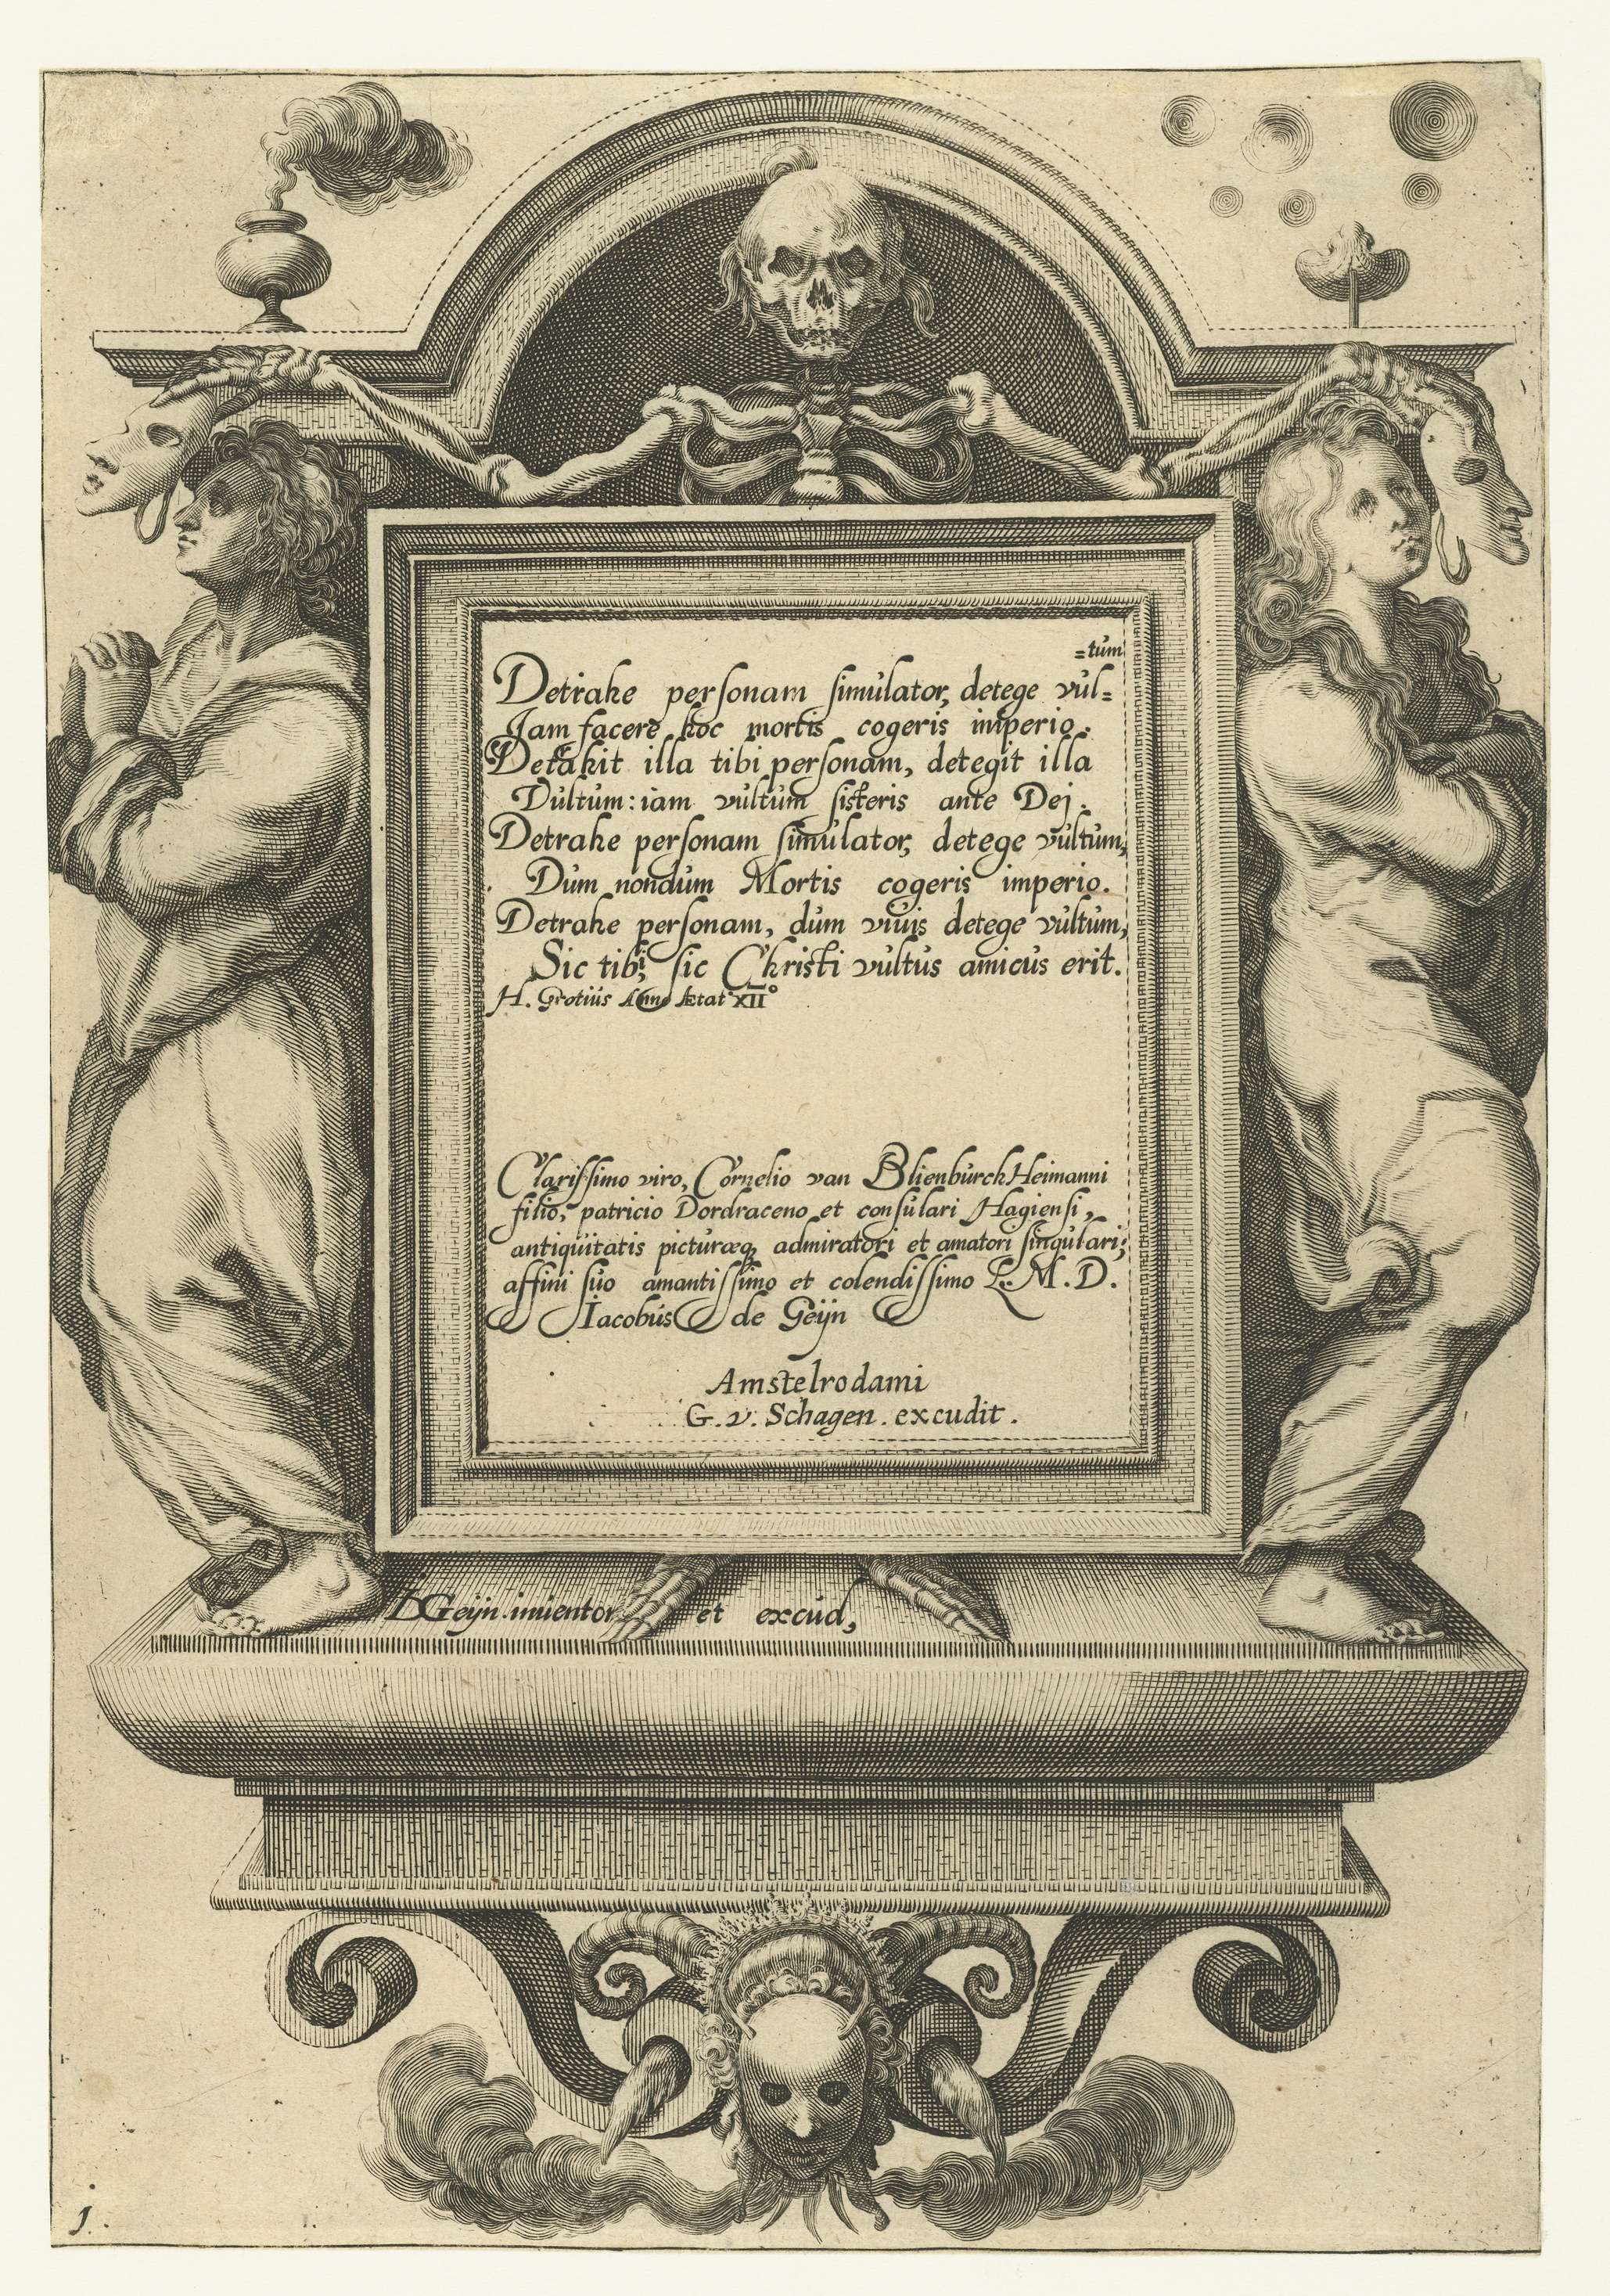 Detrahe personam simulator, detege vul=
=tum
Jam facere hoc mortis cogeris imperio.
Detrahit illa tibi personam, detegit illa
Vultum: iam vultum sisteris ante Dej.
Detrahe personam simulator, detege vultum,
Dum nondum Mortis cogeris imperio.
Detrahe personam, dum viuis detege vultum,
Sic tibi, sic Christi vultus amicus erit.
H. Grotius Anno Ætat XII°
Clarissimo viro, Cornelio van Blienburck Heimanni
filio, patricio Dordraceno et consulari Hagiensi,
antiquitatis picturæq; admiratori et amatori singulari;
affini suo amantissimo et colendissimo L. M. D.
Iacobus de Geijn
Amstelrodami
G. v. Schagen. excudit.
DGeijn inuentor et excud,
1.